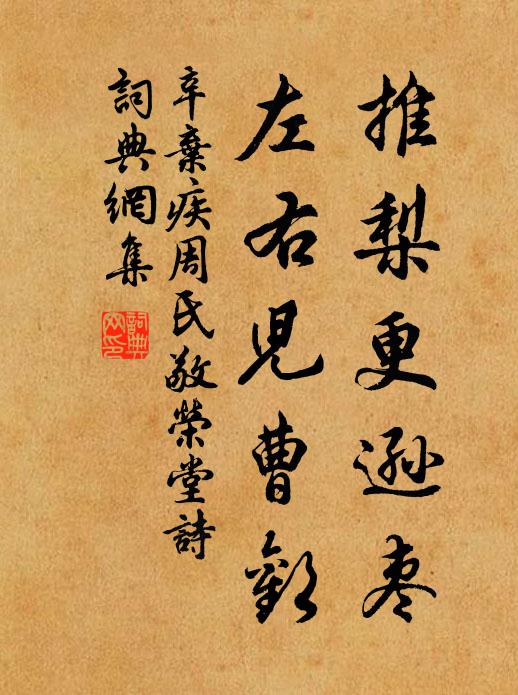 推梨更遜棗
左右兒曹歡
辛棄疾周氏敬榮堂詩
詞典網集
詞典
网印